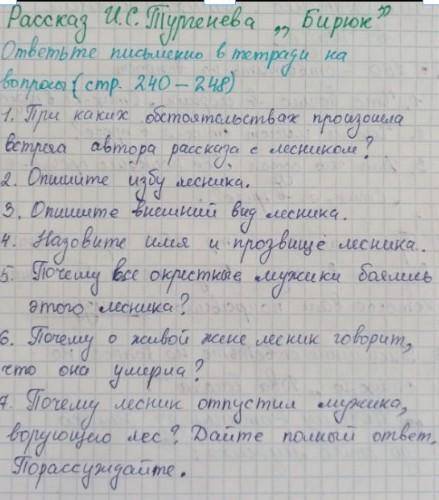 Рассказ И.С.Тургенева „ Бирюк"
Ответьте письменно в тетради на
вопросы (стр. 240 – 248)
1. При каких обстоятельствах произошла
встреча автора рассказа с лесником?
2. Опишите избу лесника.
3. Опишите внешний вид лесника.
4. Назовите имя и прозвище лесника.
5. Почему все окрестные мужики боялись
этого лесника?
6. Почему о живой жене лесник говорит,
что она умерла?
7. Почему лесник отпустил мужика,
ворующего лес? Дайте полный ответ.
Порассуждайте.